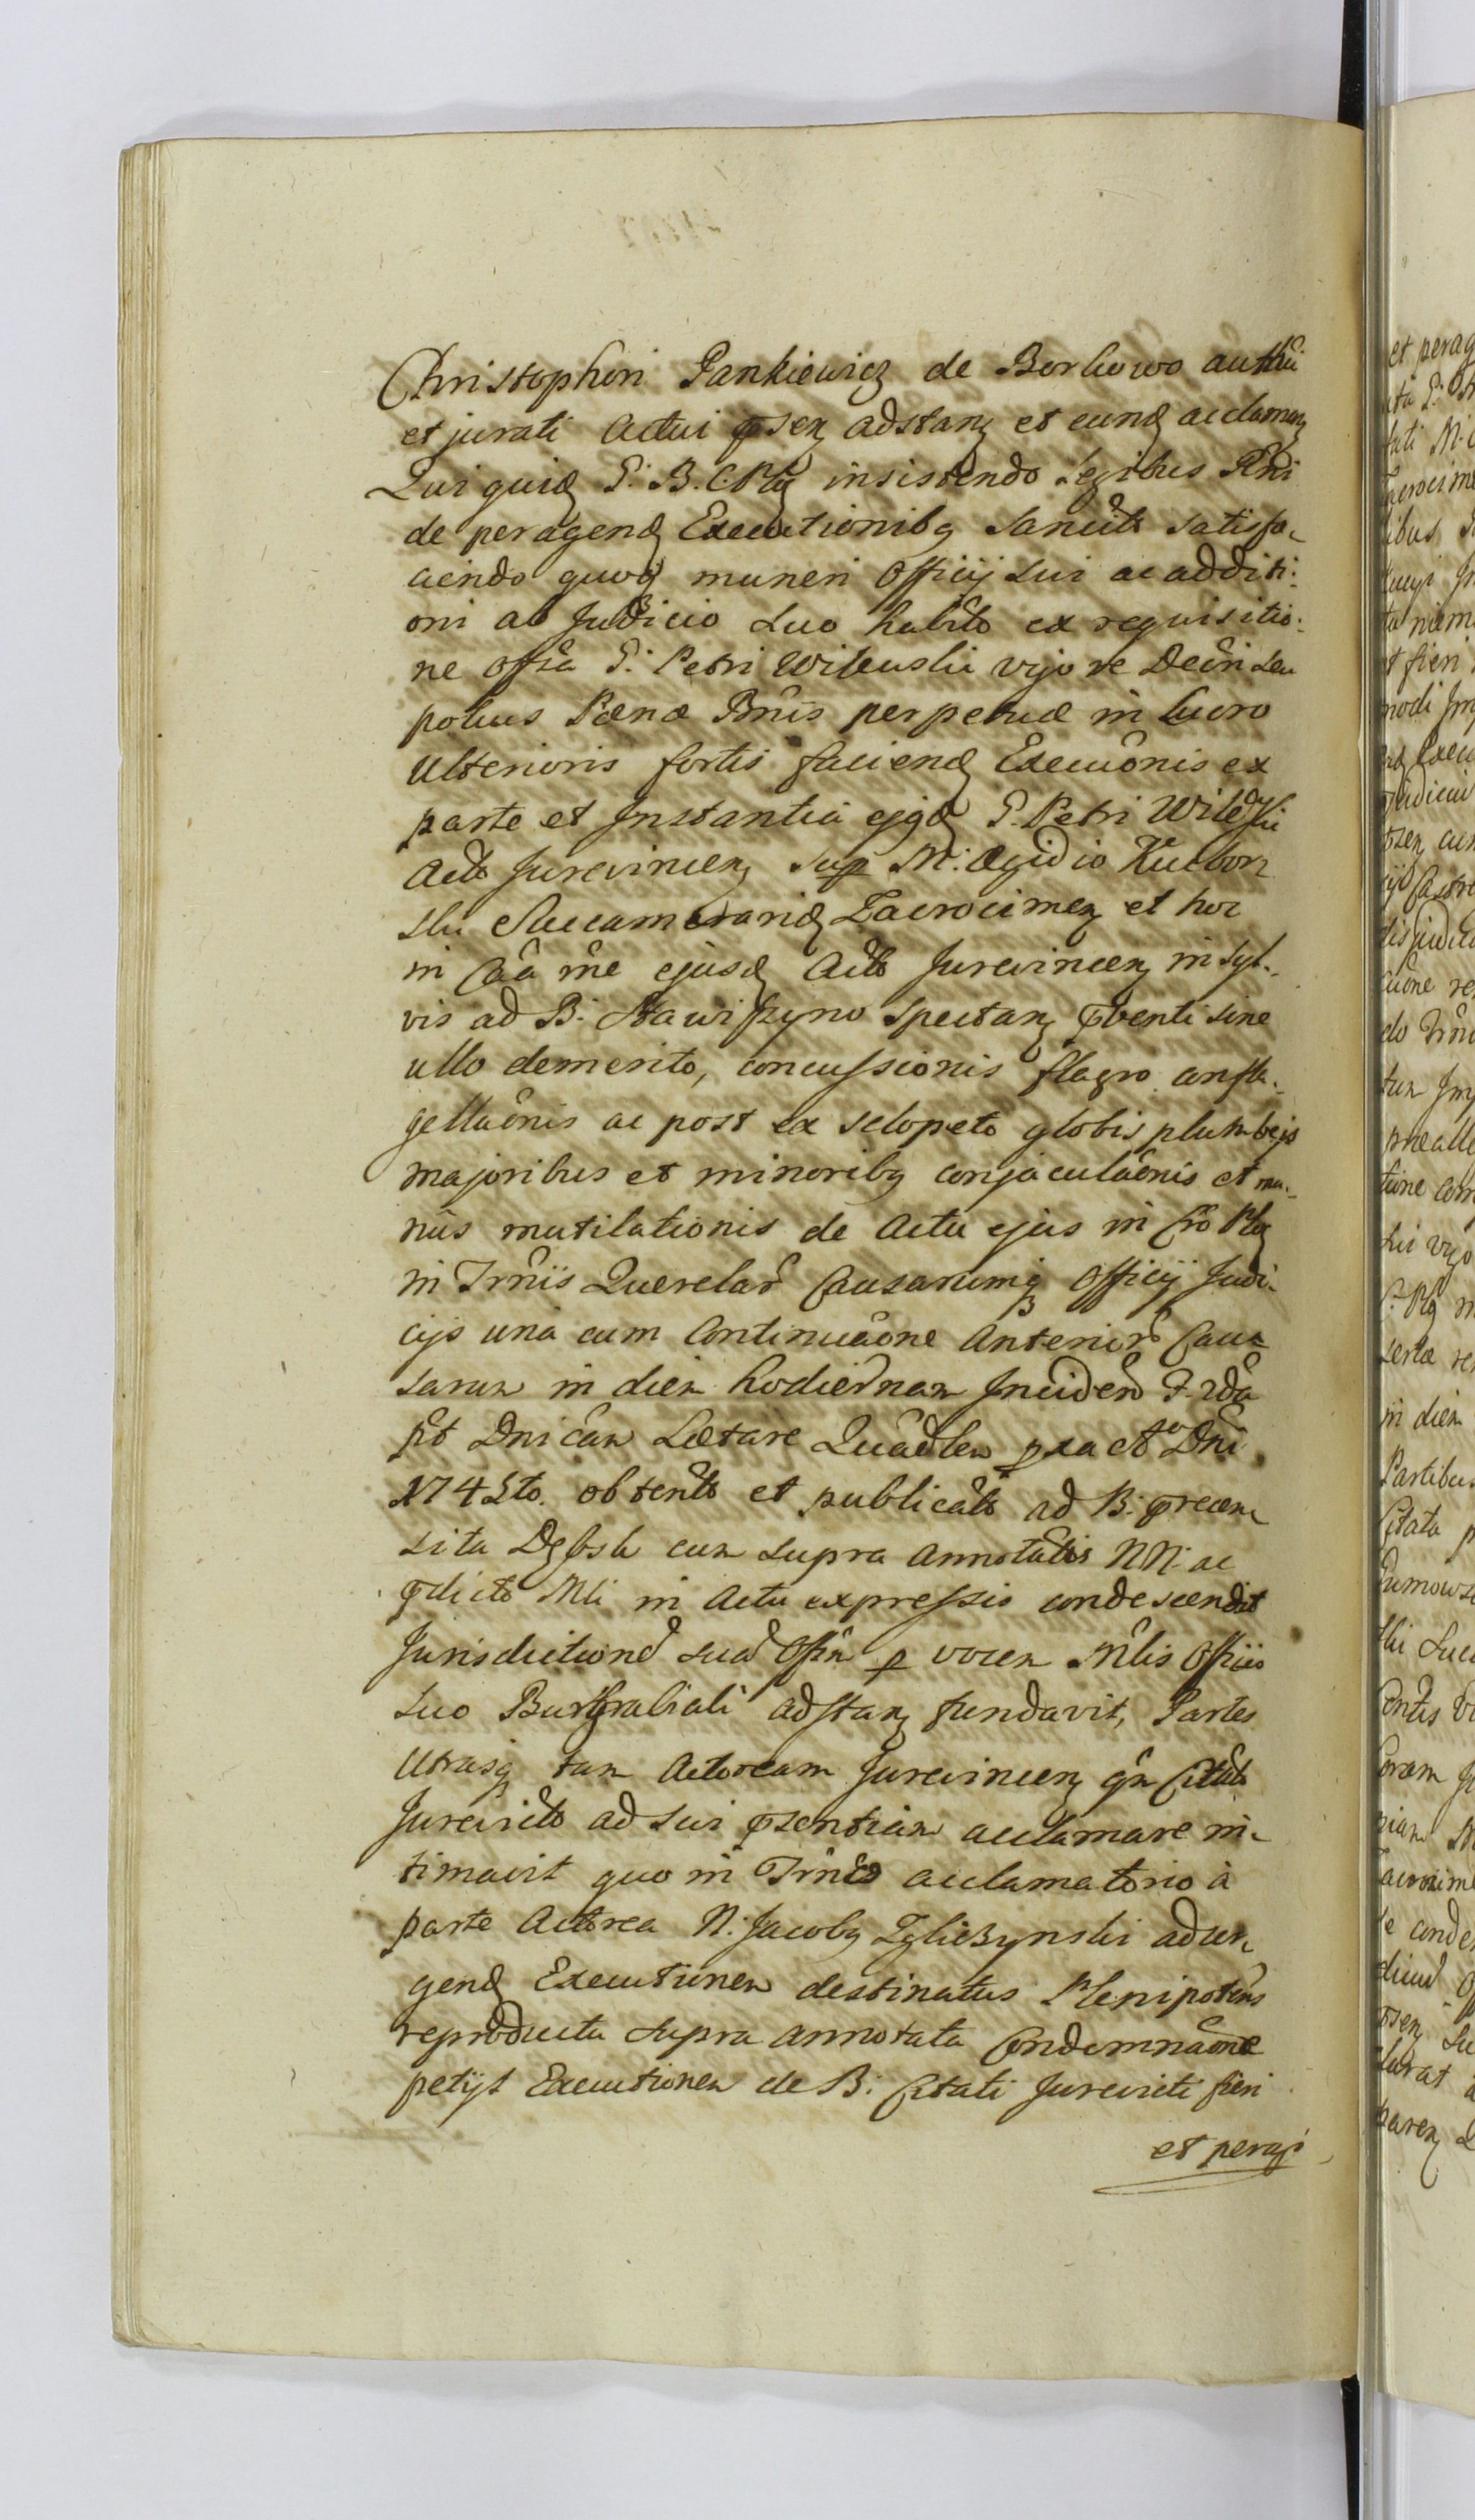 Christophori Pankiewicz de Borkowo authen
et jurati Actui psen adstan et eund acclaman
Qui quid G. B. C. Plg insistendo Legibus Rni
de peragend Executionibq sancits satisfa-
ciendo quoq muneri Officij sui ac additi-
oni ab Judicio suo habito ex requisitio-
ne Offsa G. Petri Wilkuski vijore Decri seu
potius Pænæ Bnis perpetuæ in lucro
Ulterioris fortis faciend Execuonis ex
parte et Jnstantia ejqd G. Petri Wilkuski
Acto Jurevincen sup M. Ægidio Kucbor-
ski Succamerarid Zacrocimen et hoc
in Caa rne ejusd Acto Jurevincen in syl-
vis ad B. Stawiszyno spectan pventi sine
ullo demerito, concussionis flagro confla-
gellaonis ac post ex sclopeto globis plumbejs
majoribus et minoribq conjaculaonis et ma-
nus mutilationis de Actu ejus in Cro Plg
in Trnis Querelar Causarumq Officij Judi-
cijs una cum Continuaone Anterior Cau-
sarum in diem hodiernam Jnciden F. 2da
pt Dnicam Lætare Quadlem pxa Ao Dni
174Sto. obtento et publicato ad B. præm-
sita Dgbsk cum supra Annotatis NN. ac
pdicto Mli in Actu expressis condescendit
Jurisdictiond suad Offm p vocem Mlis Officio
suo Burgrabiali adstan fundavit, Partes
Utrasq tam Actoream Jurevincen qm Citat
Jurevicto ad sui psentiam acclamare in-
timavit quo in Trno acclamatorio à
parte Actorea N. Jacobq Zgliczynski ad ur-
gend Executionem destinatus Plenipotens
reproducta supra annotata Condemnaone
petijt Executionem de B. Citati Jurevicti fieri
et peragi